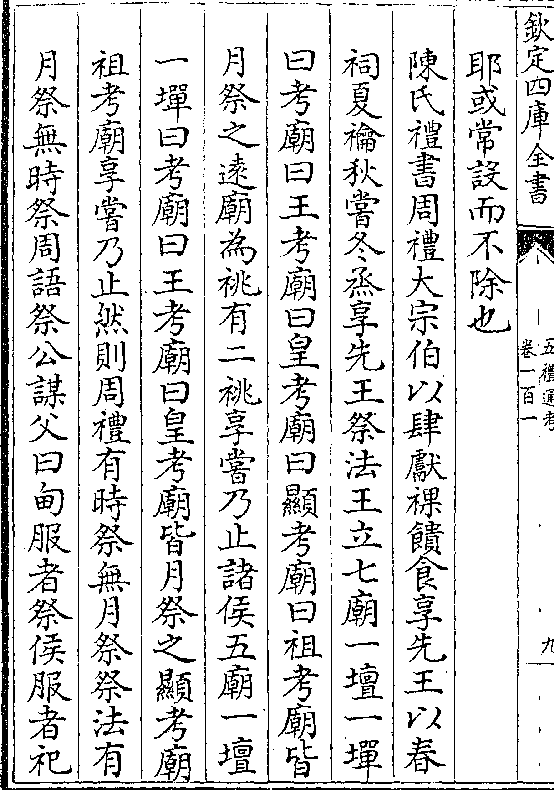 欽定四庫全書
五禮通考
卷一百一
九
耶或常設而不除也
陳氏禮書周禮大宗伯以肆獻祼饋食享先王以春
祠夏禴秋嘗冬烝享先王祭法王立七廟一壇一墠
曰考廟曰王考廟曰皇考廟曰顯考廟曰祖考廟皆
月祭之逺廟為祧有二祧享嘗乃止諸侯五廟一壇
一墠曰考廟曰王考廟曰皇考廟皆月祭之顯考廟
祖考廟享嘗乃止然則周禮有時祭無月祭祭法有
月祭無時祭周語祭公謀父曰甸服者祭侯服者祀